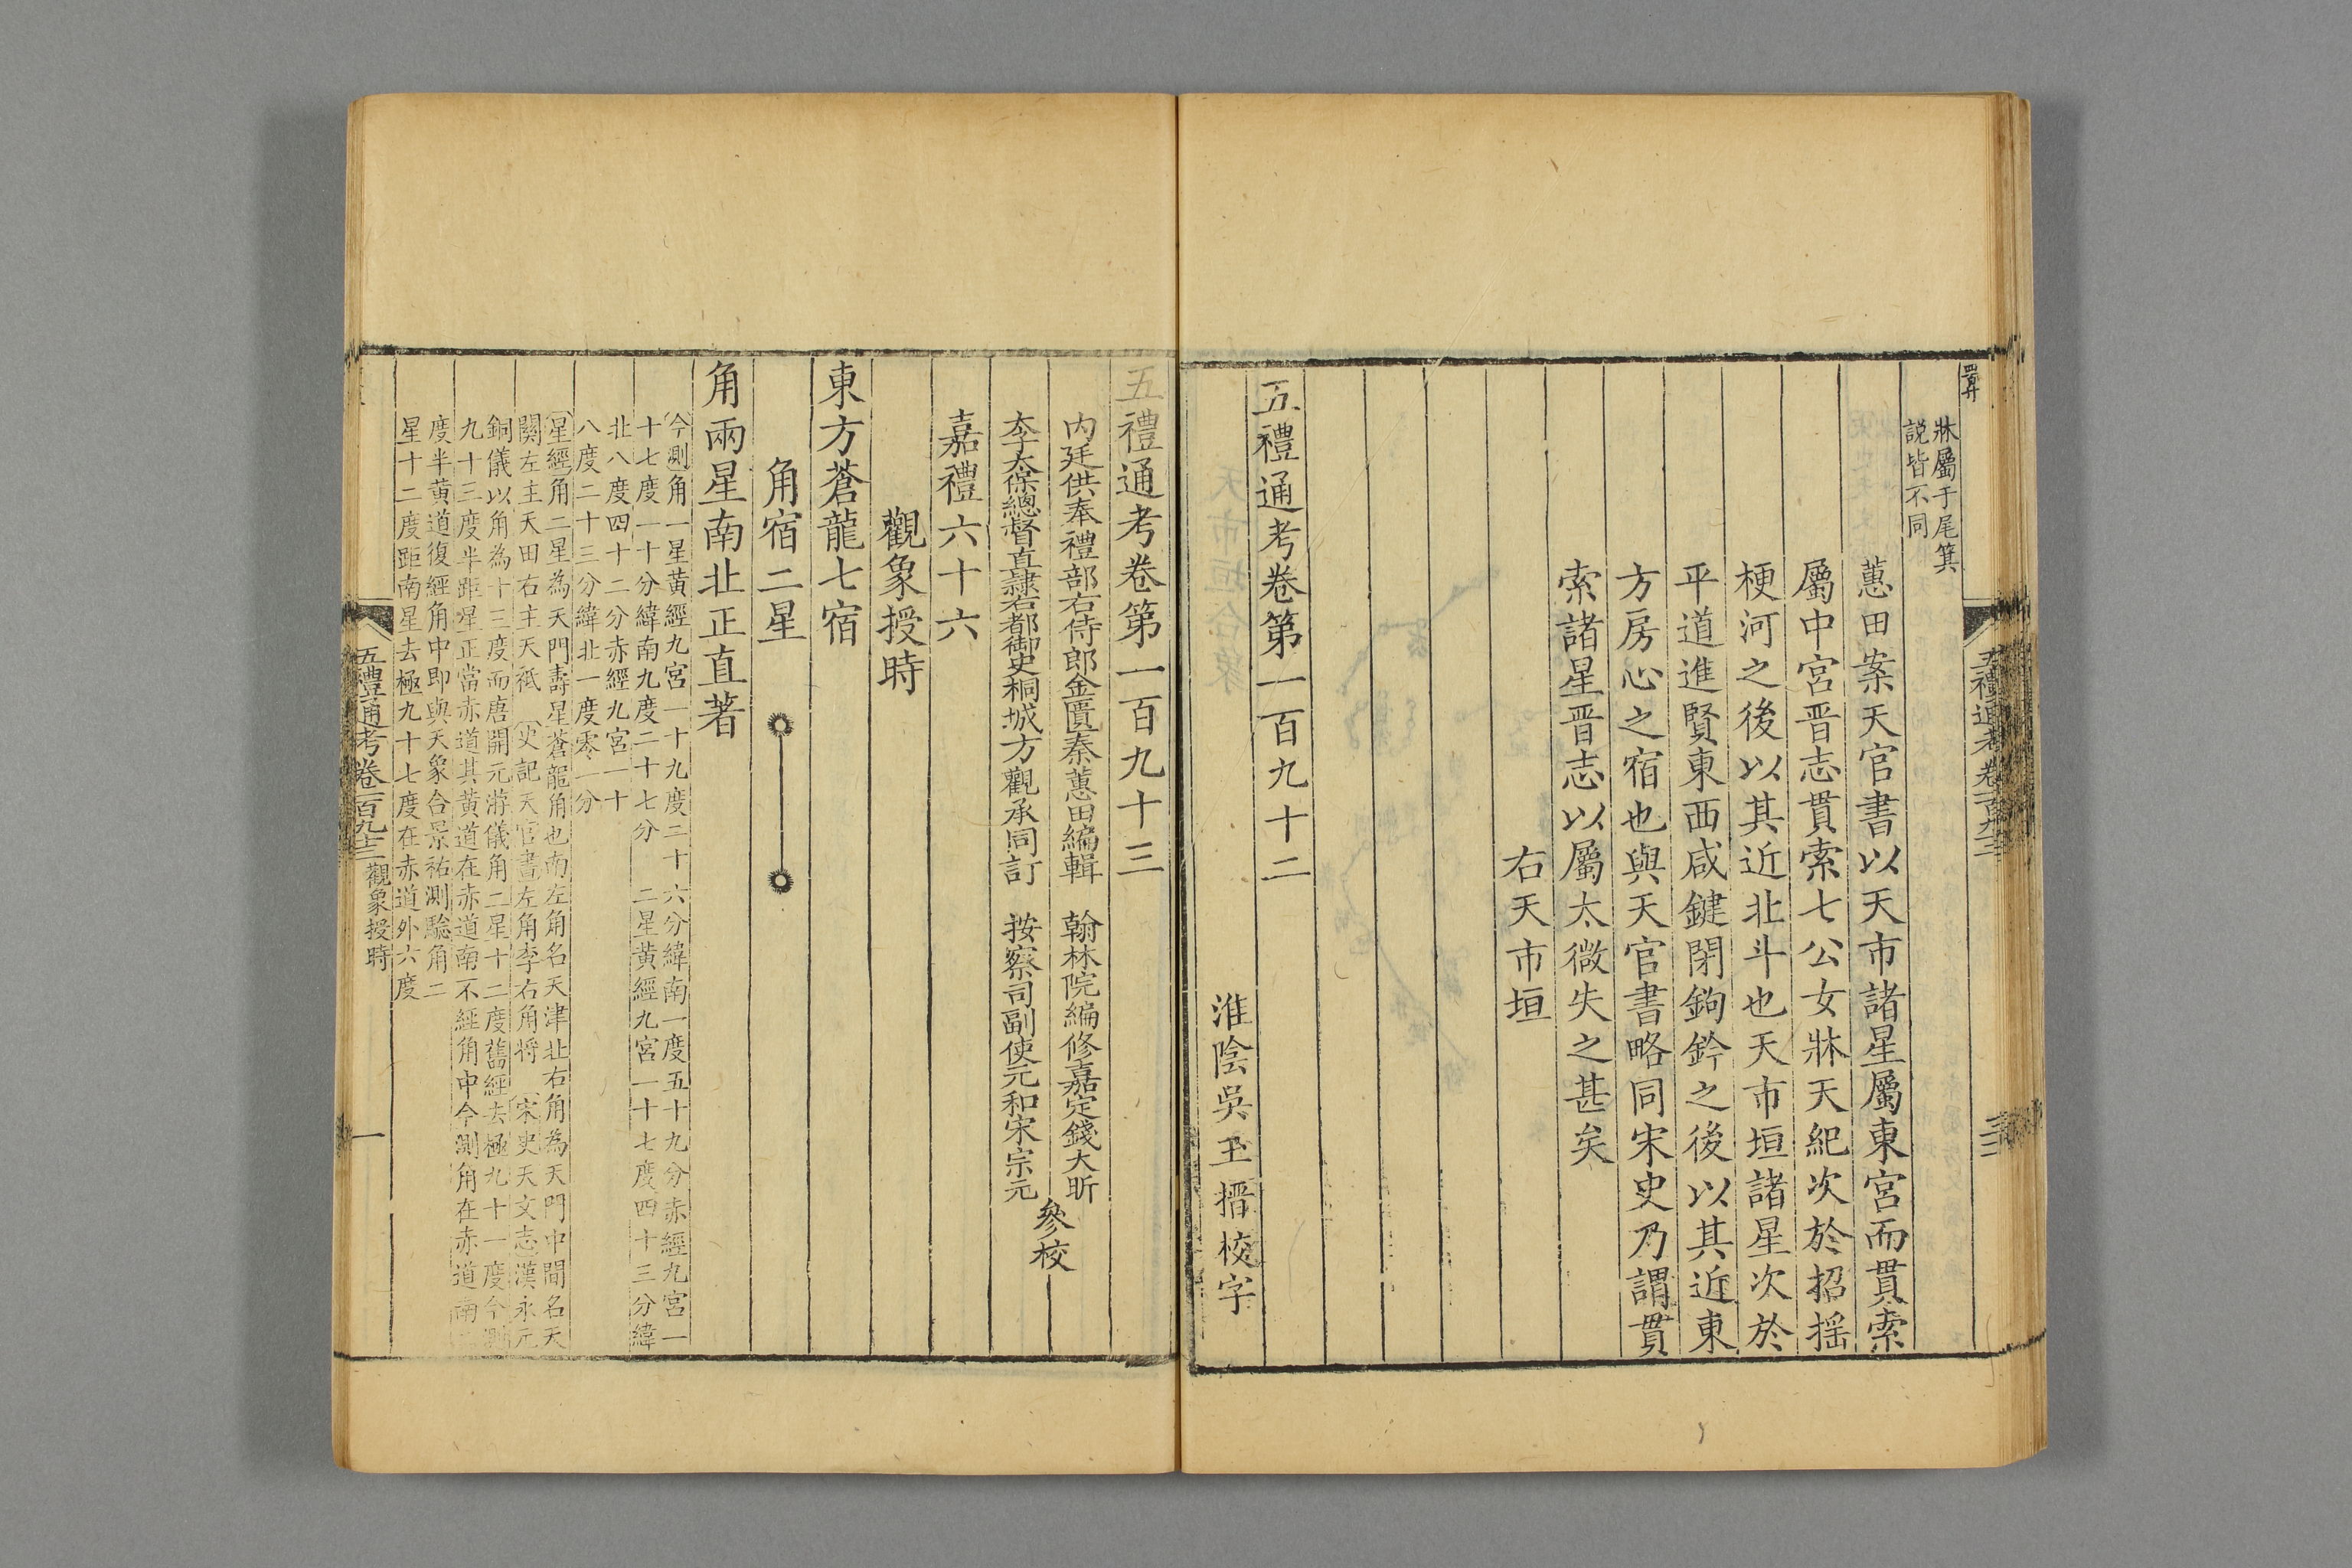 牀屬于尾箕
説皆不同
蕙田案天官書以天市諸星屬東宮而貫索
屬中宮晋志貫索七公女牀天紀次於招揺
梗河之後以其近北斗也天市垣諸星次於
平道進賢東西咸鍵閉鉤鈐之後以其近東
方房心之宿也與天官書略同宋史乃謂貫
索諸星晋志以屬太微失之甚矣
右天市垣
五禮通考卷第一百九十二
淮陰吳玉搢校字
五禮通考卷第一百九十三
内廷供奉禮部右侍郎金匱秦蕙田編輯
翰林院編修嘉定錢大昕
太子太保總督直隷右都御史桐城方觀承同訂
按察司副使元和宋宗元
參校
嘉禮六十六
觀象授時
東方蒼龍七宿
角宿二星
角兩星南北正直著
今測角一星黃經九宮一十九度二十六分緯南一度五十九分赤經九宮一
十七度一十分緯南九度二十七分 二星黃經九宮一十七度四十三分緯
北八度四十二分赤經九宮一十
八度二十三分緯北一度零一分
星經角二星為天門壽星蒼龍角也南左角名天津北右角為天門中間名天
關左主天田右主天祗 史記天官書左角李右角將 宋史天文志漢永元
銅儀以角為十三度而唐開元游儀角二星十二度舊經去極九十一度今測
九十三度半距星正當赤道其黃道在赤道南不經角中今測角在赤道南二
度半黃道復經角中即與天象合景祐測驗角二
星十二度距南星去極九十七度在赤道外六度
五禮通考卷一百九十三
觀象授時
一